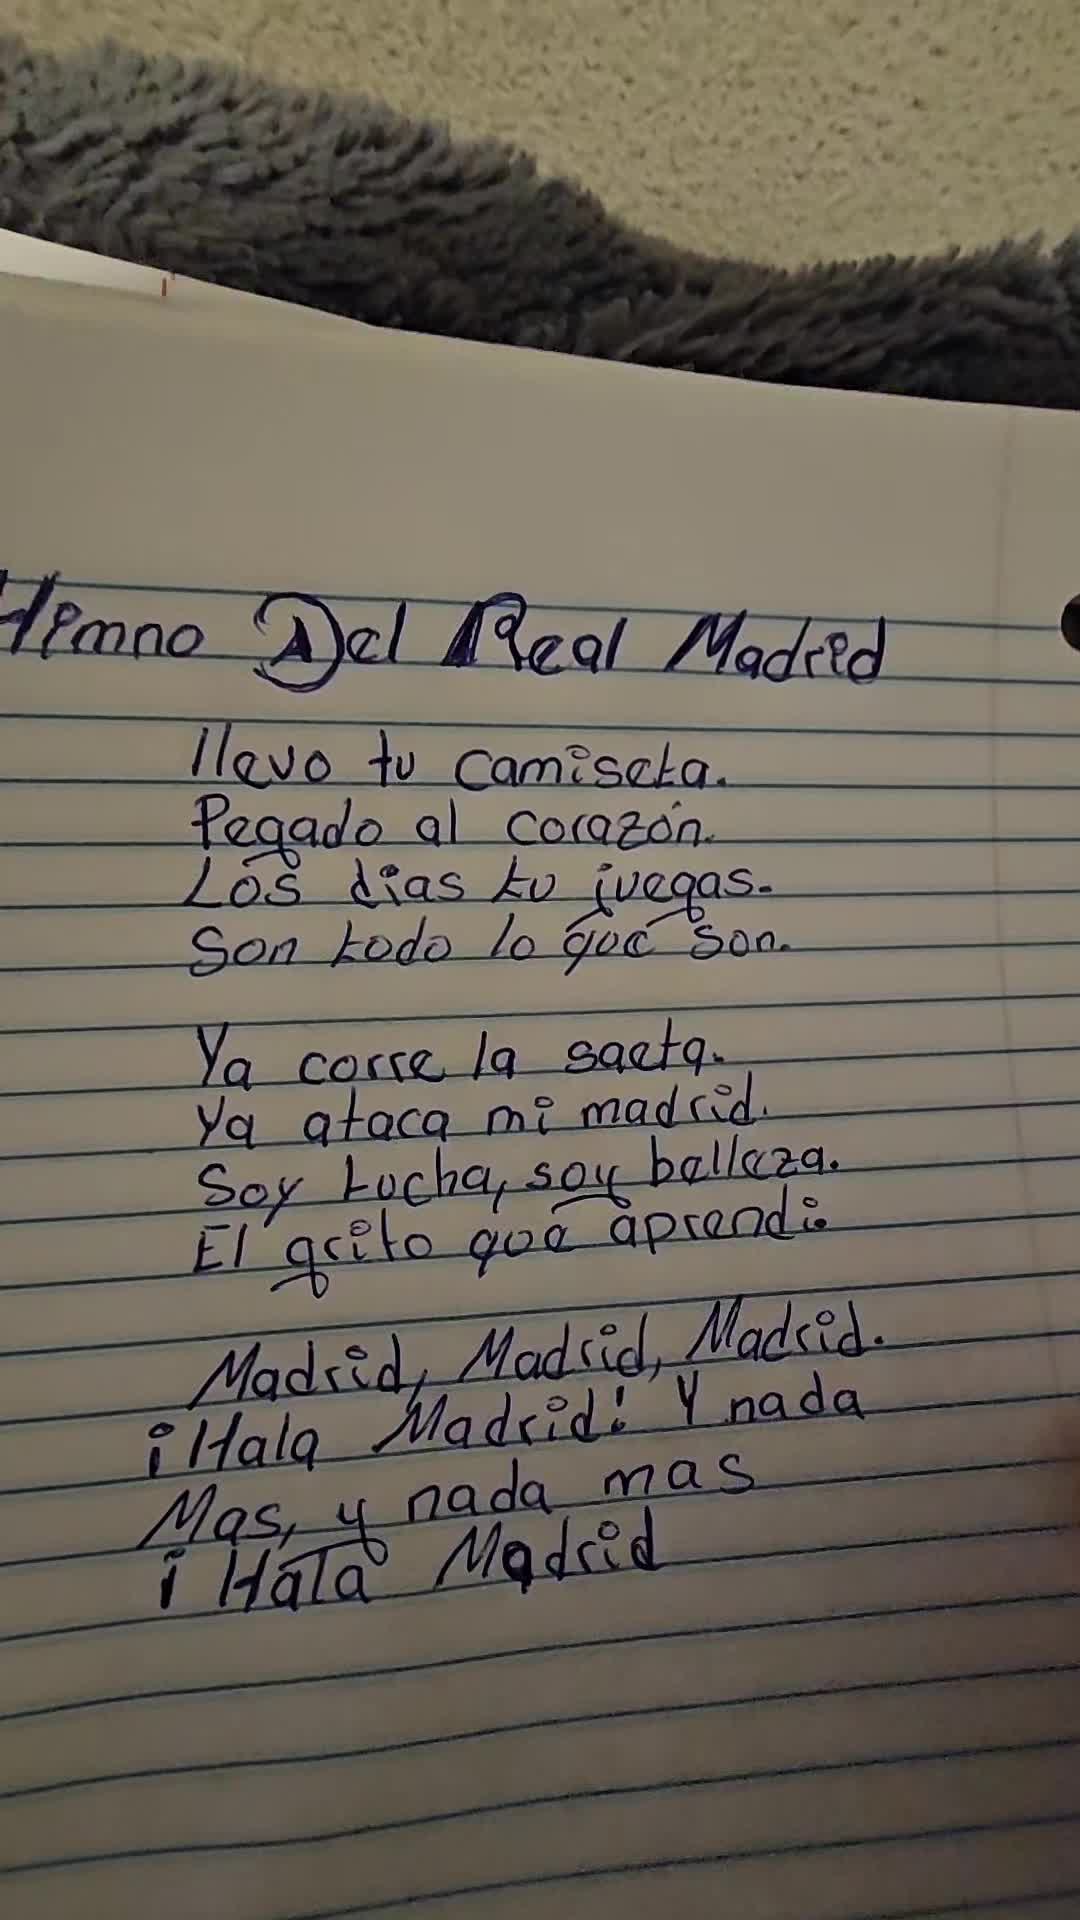 Himno Del Real Madrid
llevo tu camiseta.
Pegado al corazón.
Los dias tu juegas.
Son todo lo que son.
Ya corre la saeta.
Ya ataca mi madrid.
Soy Lucha, soy belleza.
El grito que aprendi.
Madrid, Madrid, Madrid.
¡Hala Madrid! Y nada
Mas, y nada mas
¡Hala Madrid